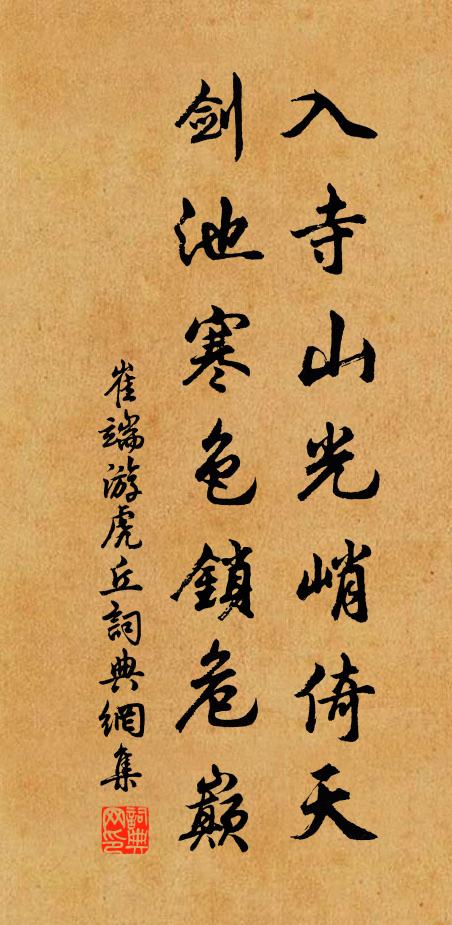 入寺山光峭倚天
剑池寒色鎖危巅
崔端游虎丘詞典網集
詞典网印